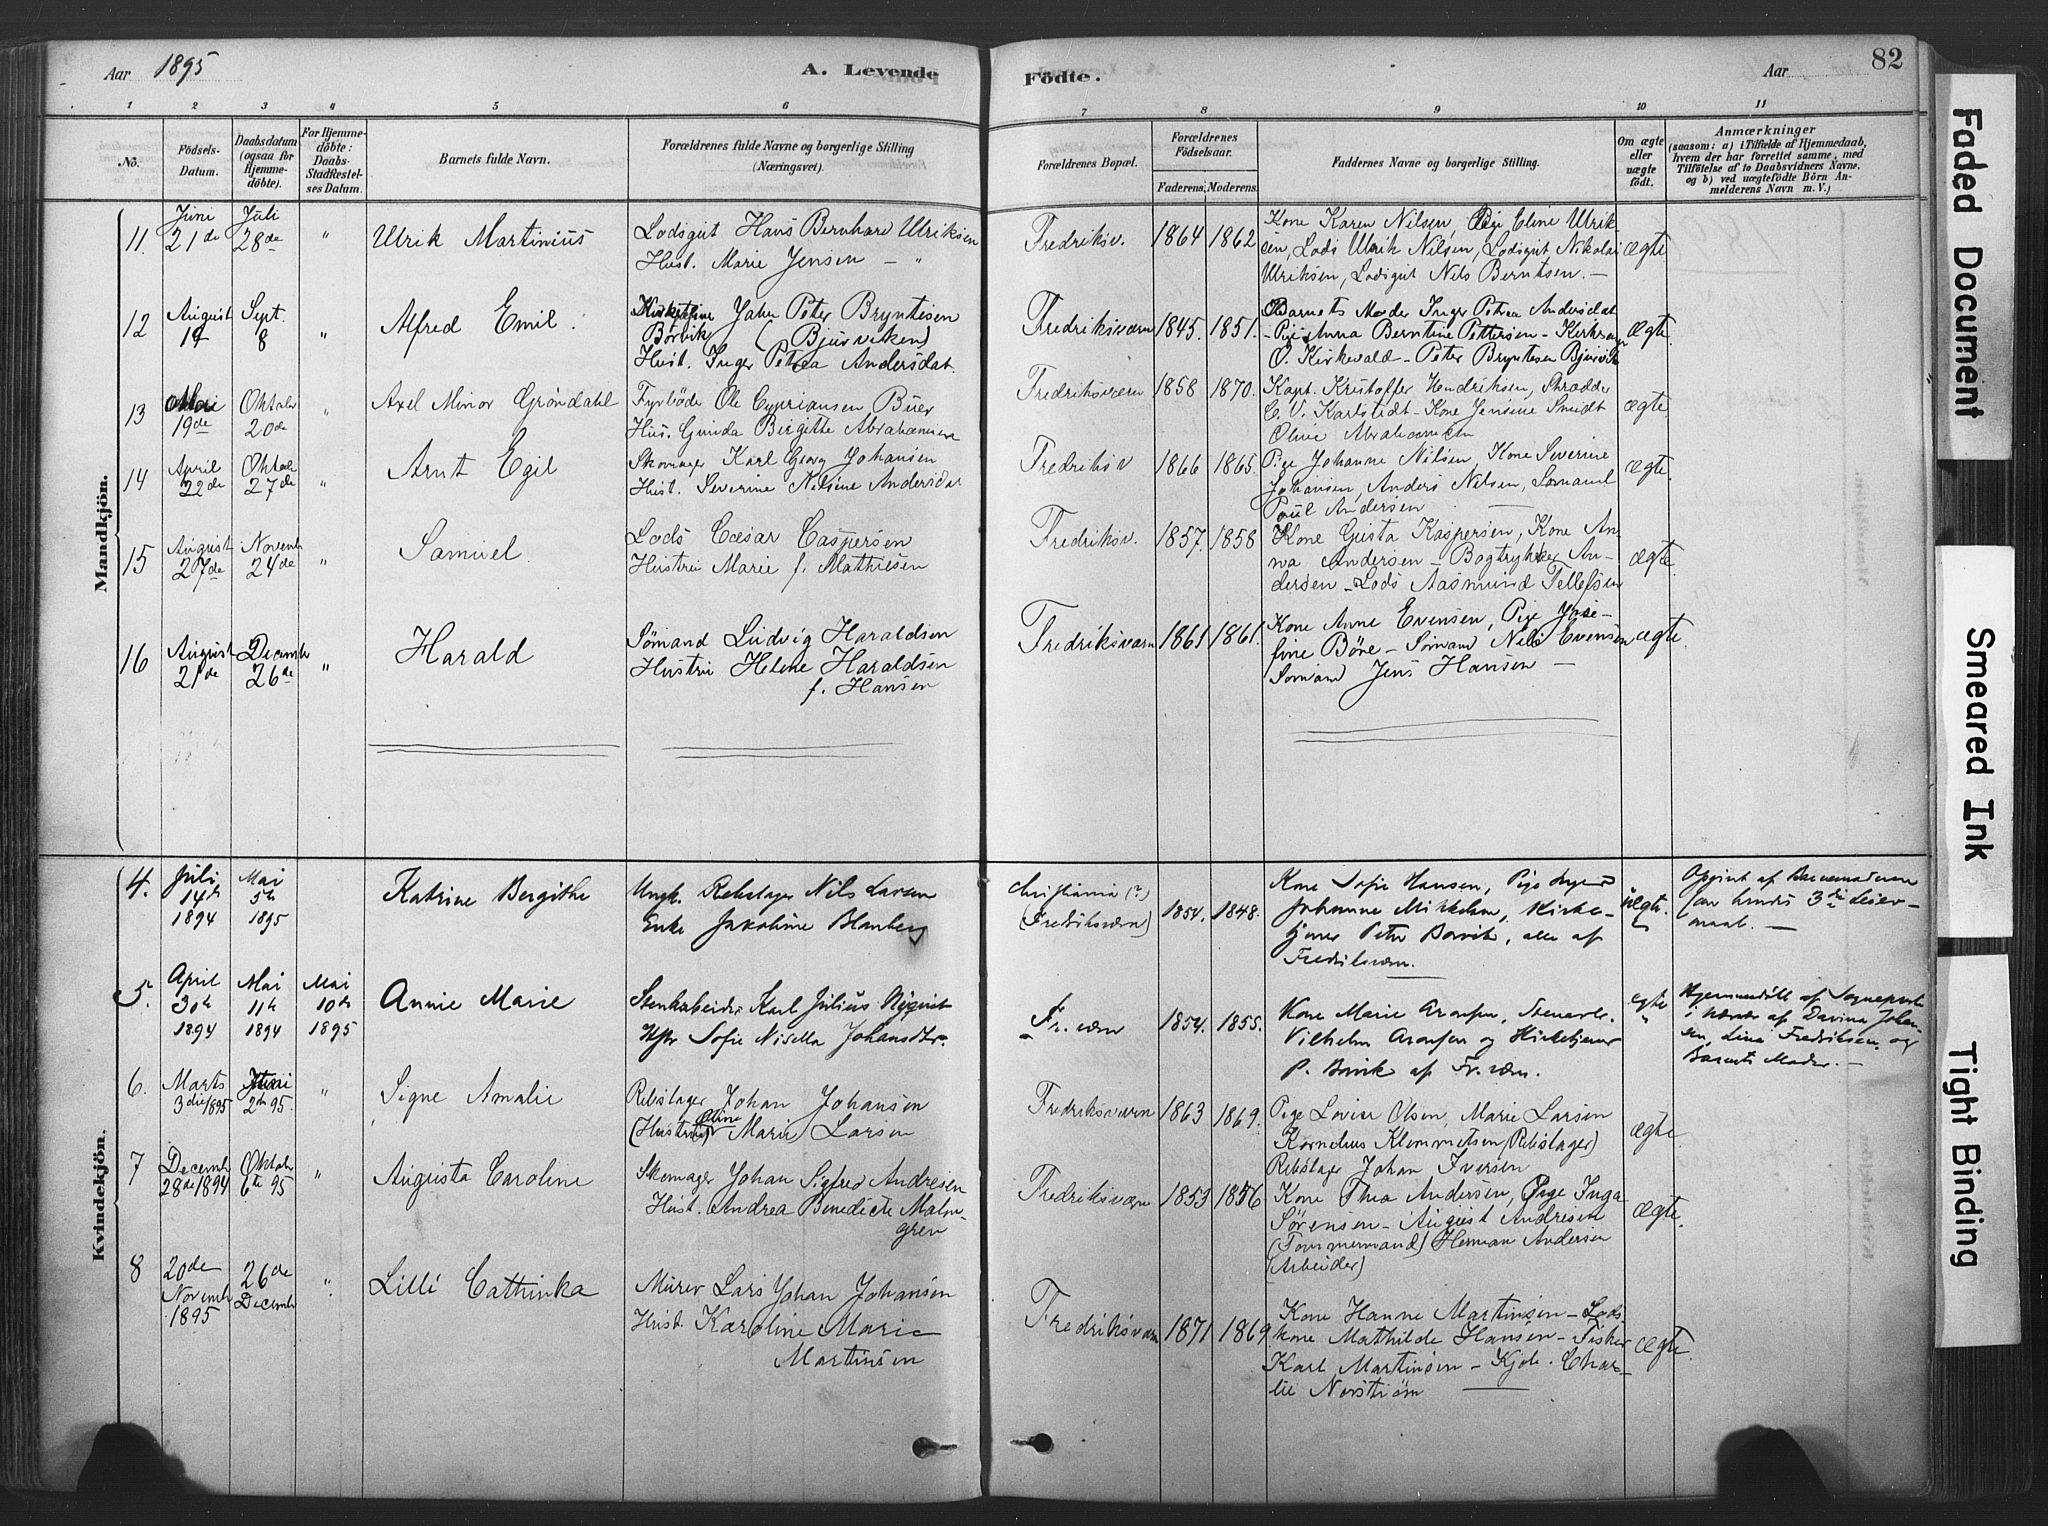 Aar 1895
A. Levende
Födte.
Aar
82
1 2 3 4 5 6 7 8 9 10 11
No.
Födsels-
Datum.
Daabsdatum
(ogsaa for
Hjemme-
döbte).
For Hjemme-
döbte:
Daabs-
Stadfæstel-
ses Datum.
Barnets fulde Navn.
Forældrenes fulde Navne og borgerlige Stilling
(Næringsvei).
Forældrenes Bopæl.
Forældrenes
Födselsaar.
Faderens. Moderens.
Faddernes Navne og borgerlige Stilling.
Om ægte
eller
uægte
födt.
Anmærkninger
(saasom: a) i Tilfælde af Hjemmedaab,
hvem der har forrettet samme, med
Tilföielse af to Daabsvidners Navne.
og b) ved uægtefödte Börn An-
melderens Navn m. V.)
Mandkjön.
11.
Juni
21de
Juli
28de
"
Ulrik Martinius
Lodsgut Hans Bernhard Ulriksen
Hust. Marie Jensen — "
Fredriksv.
1864
1862
Kone Karen Nilsen, Pige Eline Ulrik-
sen, Lods Ulrik Nilsen, Lodsgut Nikolai
Ulriksen, Lodsgut Nils Berntsen. —
ægte
12
August
19
Sept.
8
"
Alfred Emil.
Kirketjener Johan Peter Bryntesen
Börvik (Bjurviken)
Hust. Inger Petrea Andersdat.
Fredriksværn
1845.
1851.
Barnets Moder Inger Petrea Andersdat
– Pige Anna Berntine Pettersen – Kirkesanger
O. Kirkevald – Peter Bryntesen Bjurvik
ægte.
13
19de
Oktober
20de
"
Axel Minor Gröndahl
Fyrböder Ole Cypriansen Buer
Hus. Gunda Birgitte Abrahamsen
Fredriksværn
1858
1870.
Kapt. Kristoffer Hendriksen, Skrædder
C. V. Karlstedt – Kone Jensine Smidt
Oline Abrahamsen
ægte.
14
April
22de
Oktob.
27de
"
Arnt Egil
Skomager Karl Georg Johansen
Hust. Severine Nilsine Andersdat
Fredriksv
1866
1865.
Pige Johanne Nilsen, Kone Severine
Johansen, Anders Nilsen, Sömand
Poul Andersen —
ægte.
15
August
27de
Novemb
24de
"
Samuel.
Lods Cæsar Caspersen
Hustru Marie f. Mathisen
Fredriksv.
1857.
1858
Kone Gusta Kaspersen, Kone An-
na Andersen – Bogtrykker An-
dersen – Lods Aasmund Tellefsen
ægte.
16
August
21de
Decemb
26de
"
Harald
Sömand Ludvig Haraldsen
Hustru Helene Haraldsen
f. Hansen
Fredriksværn
1861
1861.
Kone Anne Evensen, Pige Jose-
fine Böne – Sömand Nils Evensen
Sömand Jens Hansen —
ægte
Kvindekjön.
4.
Juli
14de
1894
Mai
5te
1895
Katrine Bergithe
Ungk. Rebslager Nils Larsen
Enke Jakobine Blanberg
Christiania (?)
(Fredriksværn)
1854.
1848.
Kone Sofie Hansen, Pige
Johanne Mikkelsen, Kirke-
tjener Peter Borvik, alle af
Fredriksværn.
uægte.
Opgivet af Barnemoderen
for hendes 3die Leier-
maal. —
5.
April
30te
1894
Mai
11te
1894
Mai
10de
1895
Annie Marie
Stenarbeider Karl Julius Nyqvist
Hstr Sofie Nisella Johansdtr.
Fr.værn
1854.
1855.
Kone Marie Aronsen, Stenarb.
Vilhelm Aronsen og Kirketjener
P. Borvik af Fr.værn.
ægte
Hjemmedöbt af Sognepresten
i Nærvær af Davina Johan-
sen, Lina Fredriksen og
Barnets Moder. —
6.
Marts
3die 1895
Juni
2den 95.
"
Signe Amalie
Rebslager Johan Johansen
(Hustru) Oline Marie Larsen
Fredriksværn
1863
1869.
Pige Lovise Olsen, Marie Larsen
Kornelius Klemmetsen (Rebslager)
Rebslager Johan Iversen
ægte.
7
Decemb
28de 1894
Oktober
6te 95
"
Augusta Caroline
Skomager Johan Sigfred Andresen
Hust. Andrea Benedicte Malm-
gren
Fredriksværn
1853
1856
Kone Thea Andersen, Pige Inga
Sörensen – August Andresen
(Tömmermand) Herman Andersen
(Arbeider)
ægte.
8
20de
Novemb
1895
26de
Decemb
"
Lilli Cathinka
Murer Lars Johan Johansen
Hust. Karoline Marie
Martinsen
Fredriksværn
1871
1869
Kone Hanne Martinsen – Lods-
kone Mathilde Hansen – Fisker
Karl Martinsen – Kjöb. Char-
lie Norström —
ægte.
Faded Document
Smeared Ink
Tight Binding